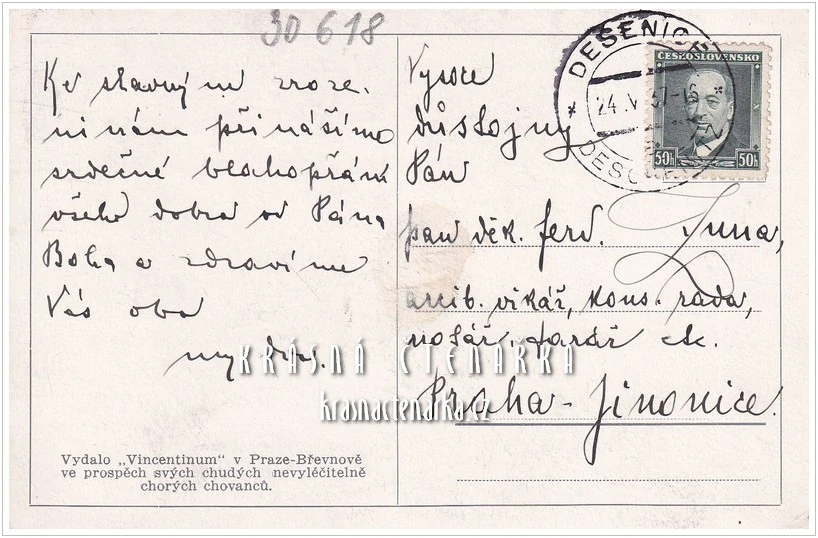 30 618
Ke slavným naroze-
ninám přinášíme
srdečné blahopřání
všeho dobra od Pána
Boha a zdravíme
Vás oba
my dva.
Vydalo „Vincentinum“ v Praze-Břevnově
ve prospěch svých chudých nevyléčitelně
chorých chovanců.
DESENICE
24.V.37-16
ČESKOSLOVENSKO
50h 50h
Vysoce
důstojný
Pán
pan děk. Ferd.
arcib. vikář, kons. rada,
notář, farář etc.
Praha - Jinonice.
KRÁSNÁ ČTENÁŘKA
krasnactenarka.cz